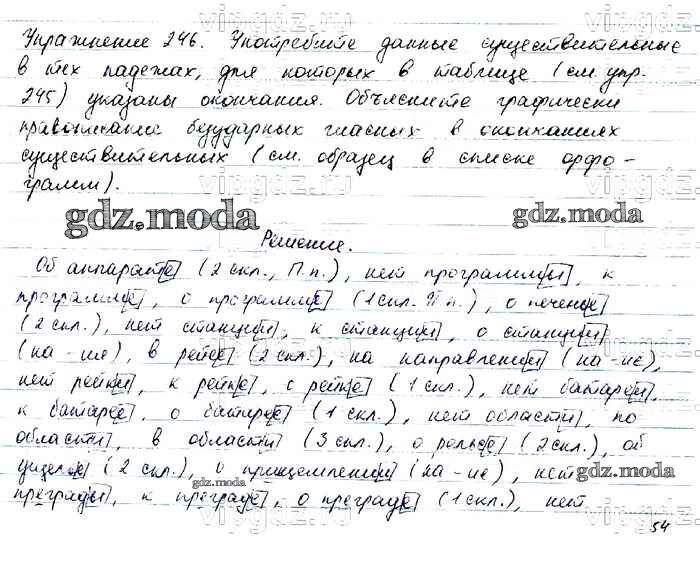 Упражнение 246. Употребите данные существительные
в тех падежах, для которых в таблице (см. упр.
245) указаны окончания. Объясните графически
правописание безударных гласных в окончаниях
существительных (см. образец в списке орфо-
грамм).
gdz.moda
Решение.
Об аппарате (2 скл., П.п.), нет программы, к
программе, о программе (1 скл. П.п.), о печенье
(2 скл.), нет станции, к станции, о станции
(на -ия), в рейсе (2 скл.), на направлении (на -ие),
нет рейки, к рейке, о рейке (1 скл.), нет батареи,
к батарее, о батарее (1 скл.), нет области, по
области, в области (3 скл.), о рельсе (2 скл.), об
ущелье (2 скл.), о прищемлении (на -ие), нет
преграды, к преграде, о преграде (1 скл.), нет
gdz.moda
gdz.moda
54
vipgdz.ru